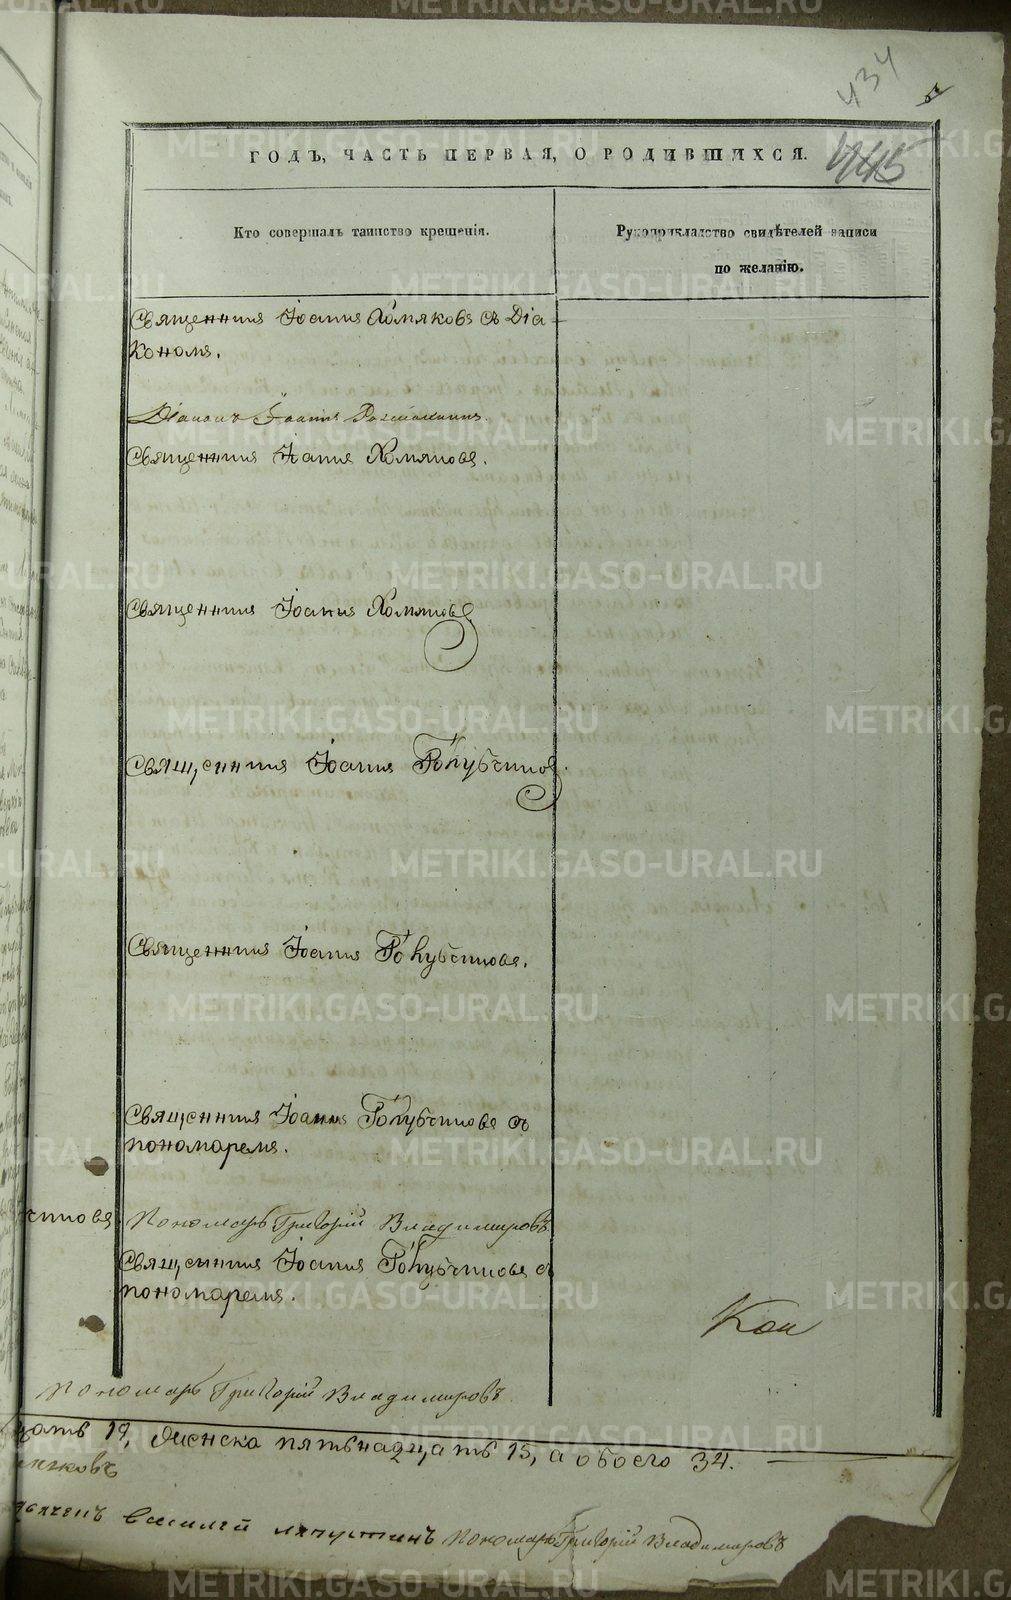 434
445
ГОДЪ, ЧАСТЬ ПЕРВАЯ, О РОДИВШИХСЯ.
Кто совершалъ таинство крещенія.
Рукоприкладство свидѣтелей записи
по желанію.
Священникъ Іоаннъ Хомяковъ съ Діа-
кономъ.
Діаконъ Іоаннъ
Священникъ Іоаннъ Хомяковъ.
Священникъ Іоаннъ Хомяковъ
Священникъ Іоаннъ Голубчиковъ.
Священникъ Іоаннъ Голубчиковъ.
Священникъ Іоаннъ Голубчиковъ съ
пономаремъ.
чиковъ Пономарь Григорій Владимировъ
Священникъ Іоаннъ Голубчиковъ съ
пономаремъ.
Кон
Пономарь Григорій Владимировъ
цать 19, женска пятьнадцать 15, а обоего 34.
Василей Ляпустинъ Пономарь Григорій Владимировъ
METRIKI.GASO-URAL.RU